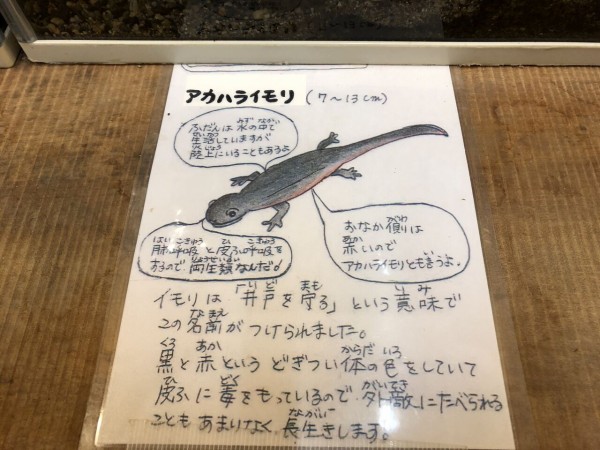 アカハライモリ (7～13cm)
ふだんは水の中で
生活していますが
陸上にいることもあるよ
おなか側は
赤いので
アカハライモリとも言うよ。
肺呼吸と皮ふ呼吸を
するので両生類なんだ!
イモリは「井戸を守る」という意味で
この名前がつけられました。
黒と赤という どぎつい体の色をしていて
皮ふに毒をもっているので外敵にたべられる
こともあまりなく長生きします。